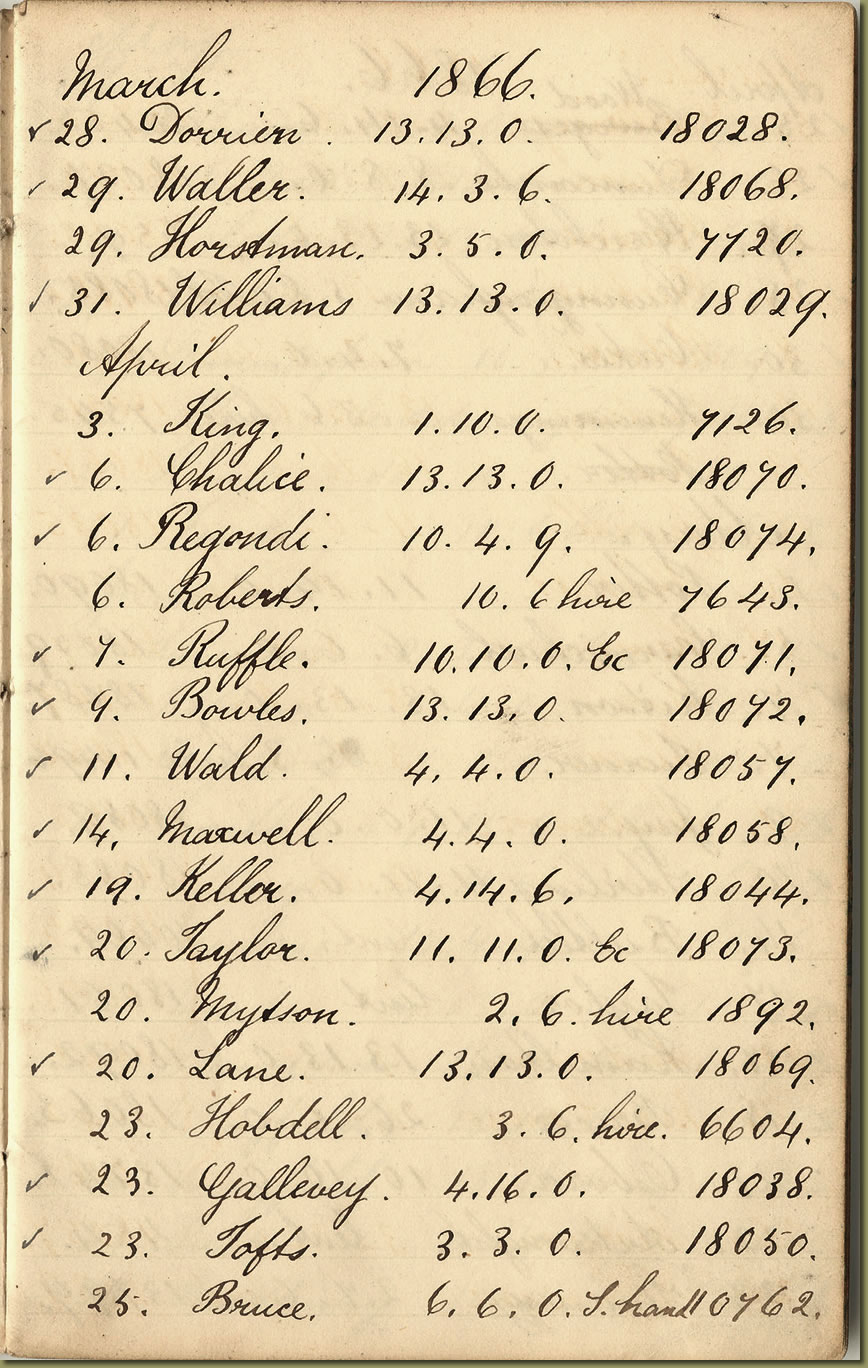 March. 1866.
28. Dorrien. 13.13.0. 18028.
29. Waller. 14.3.6. 18068.
29. Horstman. 3.5.0. 7720.
31. Williams 13.13.0. 18029.
April.
3. King. 1.10.0. 7126.
6. Chalice. 13.13.0. 18070.
6. Regondi. 10.4.9. 18074.
6. Roberts. 10.6 hire 7643.
7. Ruffle. 10.10.0. Ec 18071.
9. Bowles. 13.13.0. 18072.
11. Wald. 4.4.0. 18057.
14. Maxwell. 4.4.0. 18058.
19. Keller. 4.14.6. 18044.
20. Taylor. 11.11.0. Ec 18073.
20. Mytson. 2.6. hire 1892.
20. Lane. 13.13.0. 18069.
23. Hobdell. 3.6. hire. 6604.
23. Gallevey. 4.16.0. 18038.
23. Tofts. 3.3.0. 18050.
25. Bruce. 6.6.0. S. hand 10762.